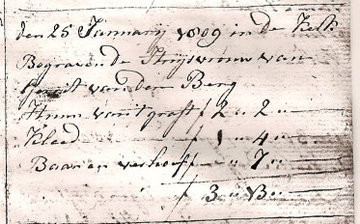 den 25 Januarij 1809 in de Kerk
Begraven de Huijsvrouw van
Gerrit van den Berg
Huur van't graft f 2 " 2 "
Kleed f 1 " 4 "
Baar en verhoeff " 7 "
f 3 " 13 "